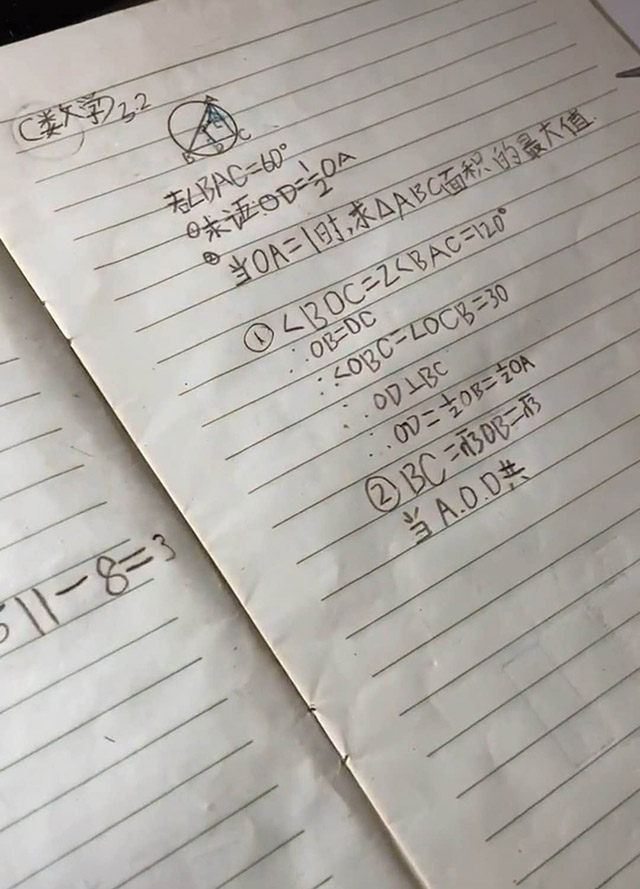 C类数学3.2
A
B D C
若∠BAC=60°
①求证:OD=½OA
②当OA=1时,求△ABC面积的最大值.
① ∠BOC=2∠BAC=120°
∵OB=OC
∴∠OBC=∠OCB=30
∵OD⊥BC
∴OD=½OB=½OA
② BC=√3OB=√3
当A.O.D共
511-8=3